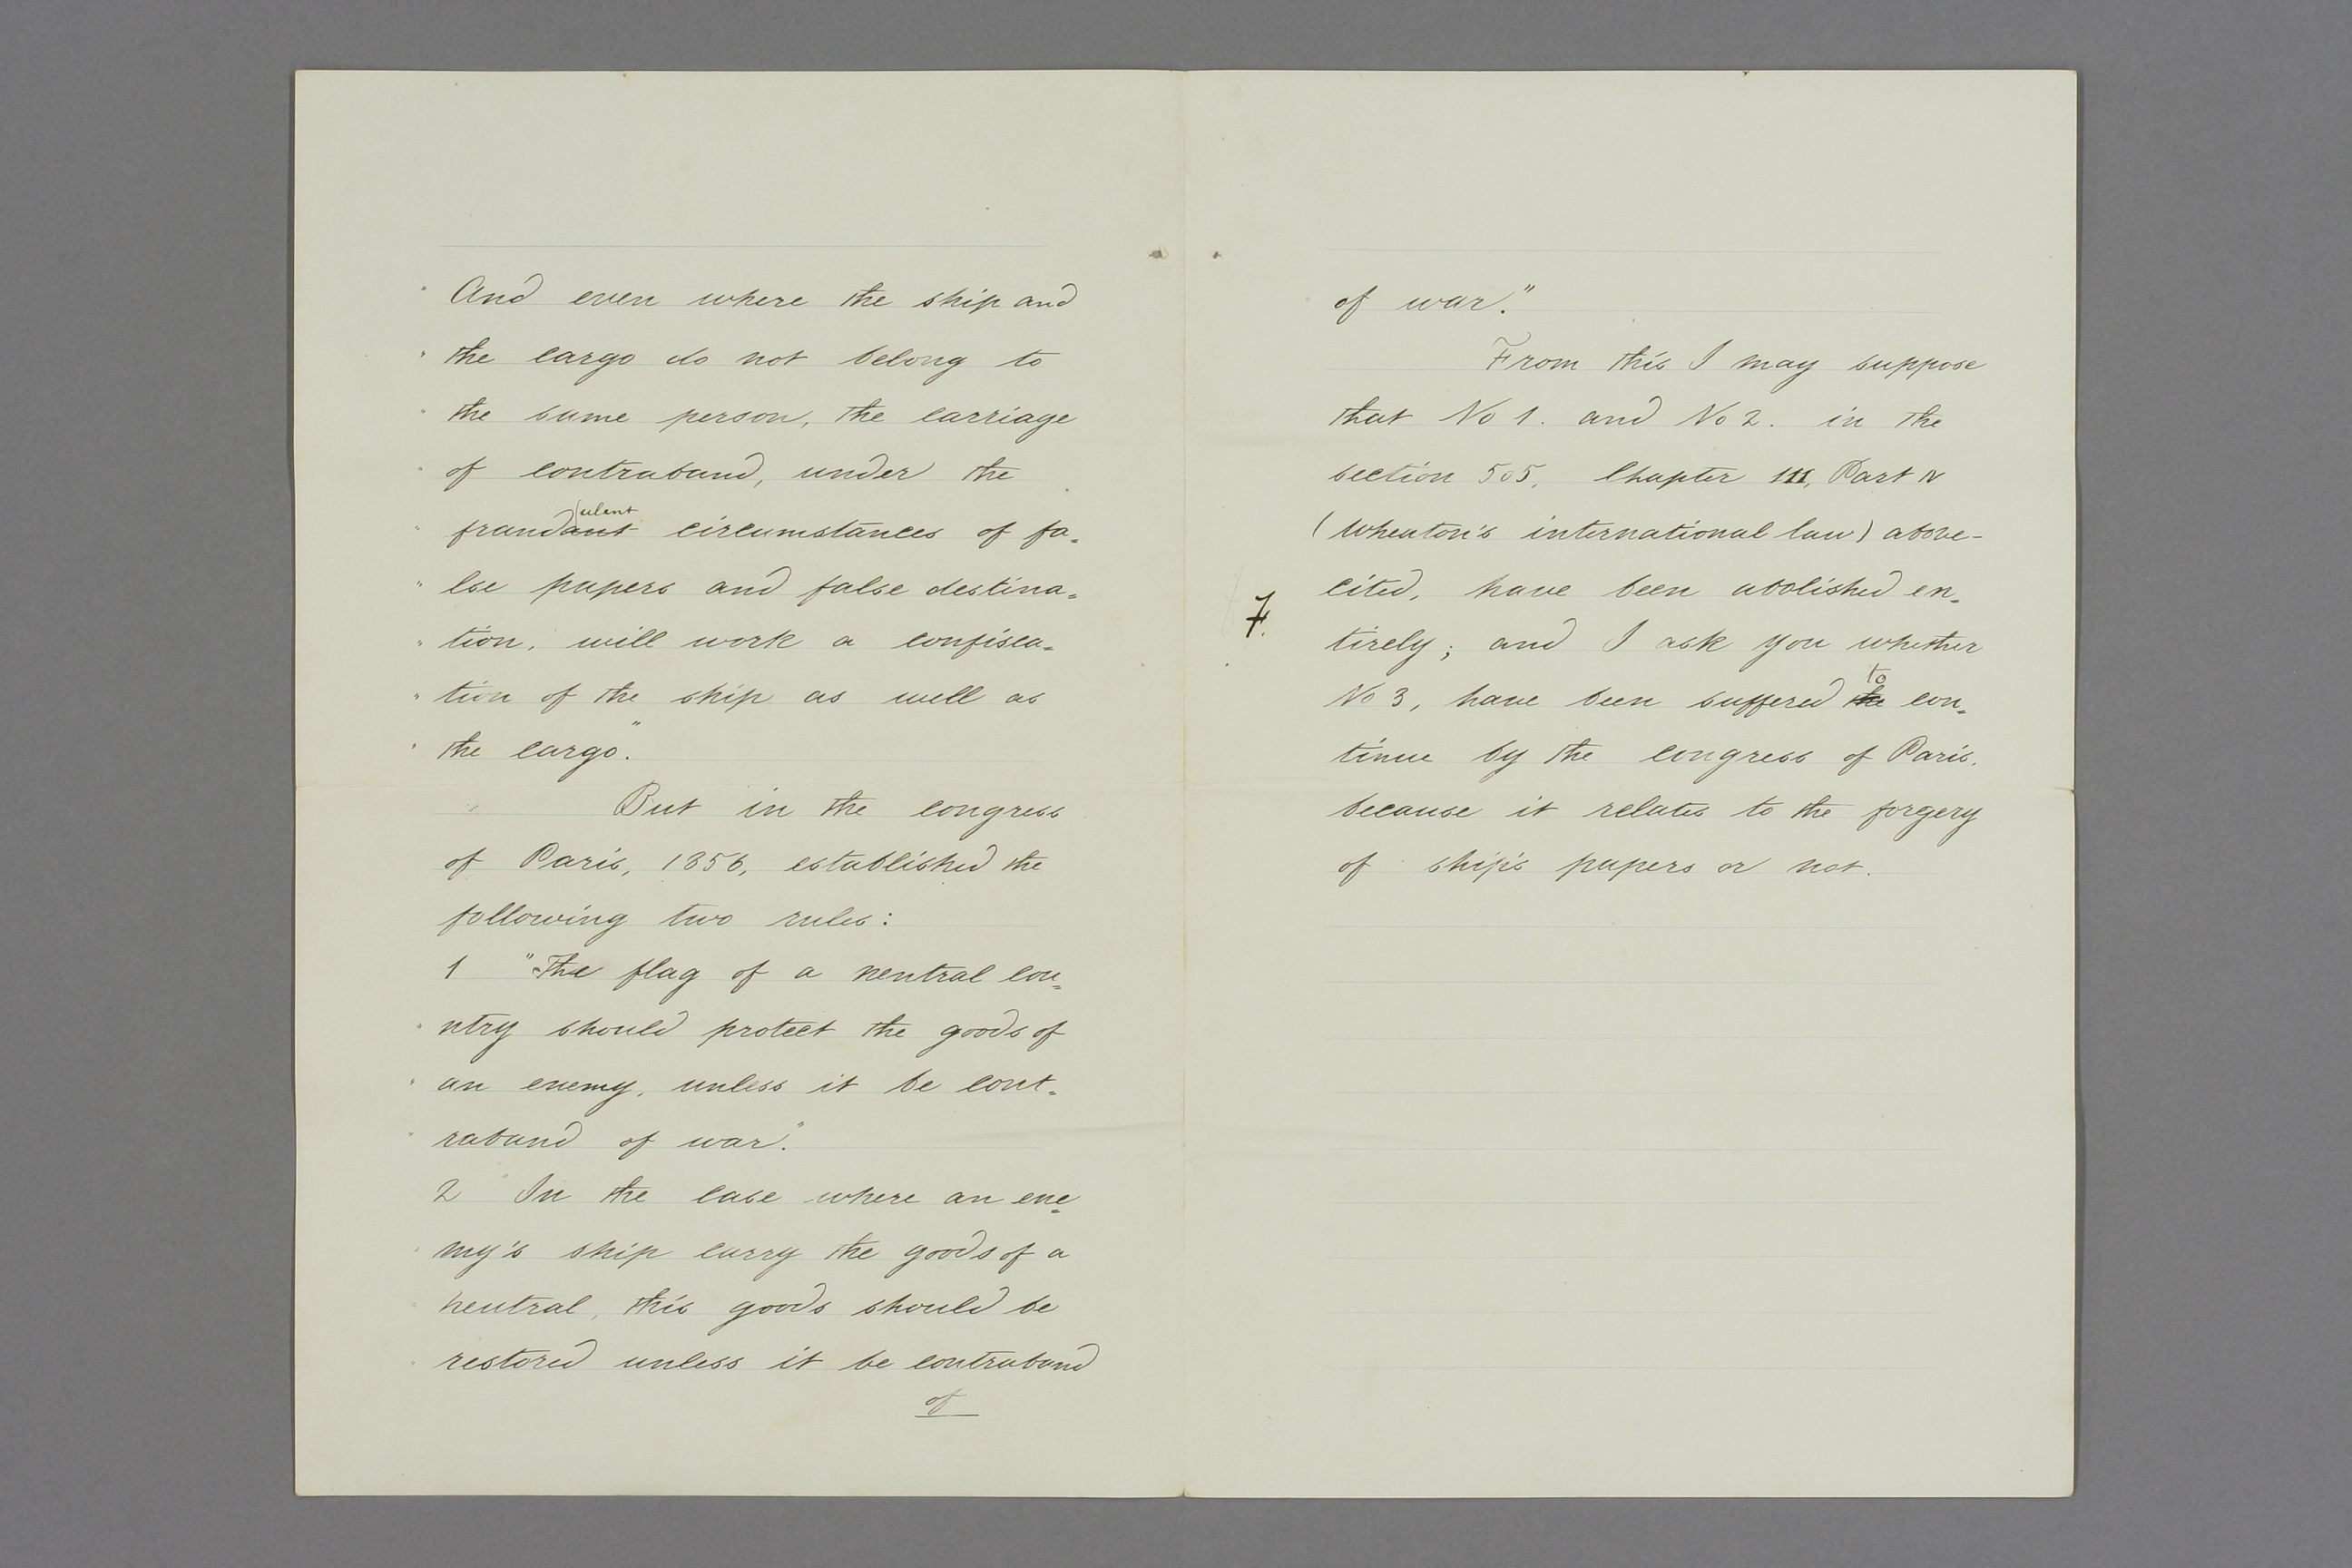 " And even where the ship and
" the cargo do not belong to
" the same person, the carriage
" of contraband, under the
ulent
" fraudant circumstances of fa=
" lse papers and false destina=
" tion, will work a confisca=
" tion of the ship as well as
" the cargo."
But in the congress
of Paris, 1856, established the
following two rules:
1 "The flag of a neutral cou=
" ntry should protect the goods of
" an enemy, unless it be cont=
" raband of war."
2 "In the case where an ene=
" my's ship carry the goods of a
" neutral, this goods should be
" restored unless it be contraband
of
of war."
From this I may suppose
that No 1. and No 2. in the
section 505, Chapter III, Part IV
(Wheaton's international law) above-
cited, have been abolished en=
7.
tirely; and I ask you whether
to
No 3, have been suffered the con=
tinue by the congress of Paris,
because it relates to the forgery
of ship's papers or not.